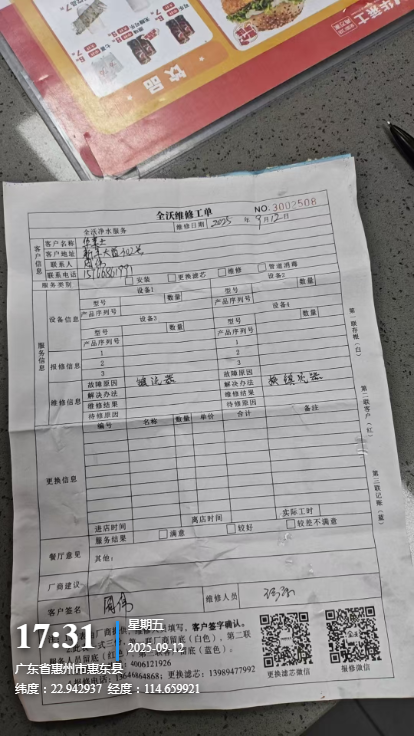 华莱士
饮品
全沃维修工单
NO.3002508
全沃净水服务
维修日期 2025 年 9月12日
客户信息
客户名称 华莱士
客户地址
联系人
联系电话
服务类别 安装 更换滤芯 维修 管道消毒
服务信息
设备信息
设备1 设备2
型号 数量 型号 数量
产品序列号 产品序列号
设备3 设备4
型号 数量 型号 数量
产品序列号 产品序列号
报修信息
1 1
2 2
3 3
维修信息
故障原因 故障原因
解决办法 解决办法
维修结果 维修结果
待修原因 待修原因
更换信息
编号 名称 数量 单价 合计 备注
进店时间 离店时间 实际工时
服务结果 满意 较好 较是不满意
餐厅意见 其他：
厂商建议
客户签名 维修人员
第一联存根（白）
第二联客户（红）
第三联记账（蓝）
填写，客户签字确认。
厂商留底（白色），第二联
留底（红色） 留底（蓝色）。
4006121926
13646864868；更换滤芯：13989477992
更换滤芯微信
报修微信
17:31
星期五
2025-09-12
广东省惠州市惠东县
纬度：22.942937 经度：114.659921